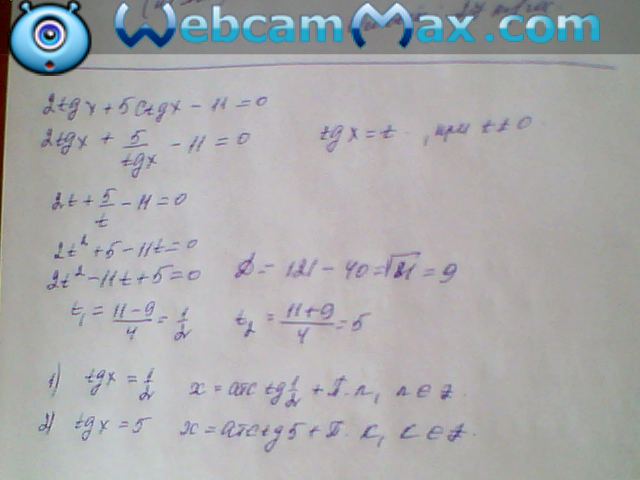 WebcamMax.com
2tgx + 5ctgx - 11 = 0
2tgx + 5/tgx - 11 = 0 tgx = t, при t ≠ 0
2t + 5/t - 11 = 0
2t² + 5 - 11t = 0
2t² - 11t + 5 = 0 D = 121 - 40 = √81 = 9
t₁ = (11 - 9)/4 = 1/2 t₂ = (11 + 9)/4 = 5
1) tgx = 1/2 x = arctg 1/2 + π·n, n ∈ Z.
2) tgx = 5 x = arctg 5 + π·к, к ∈ Z.